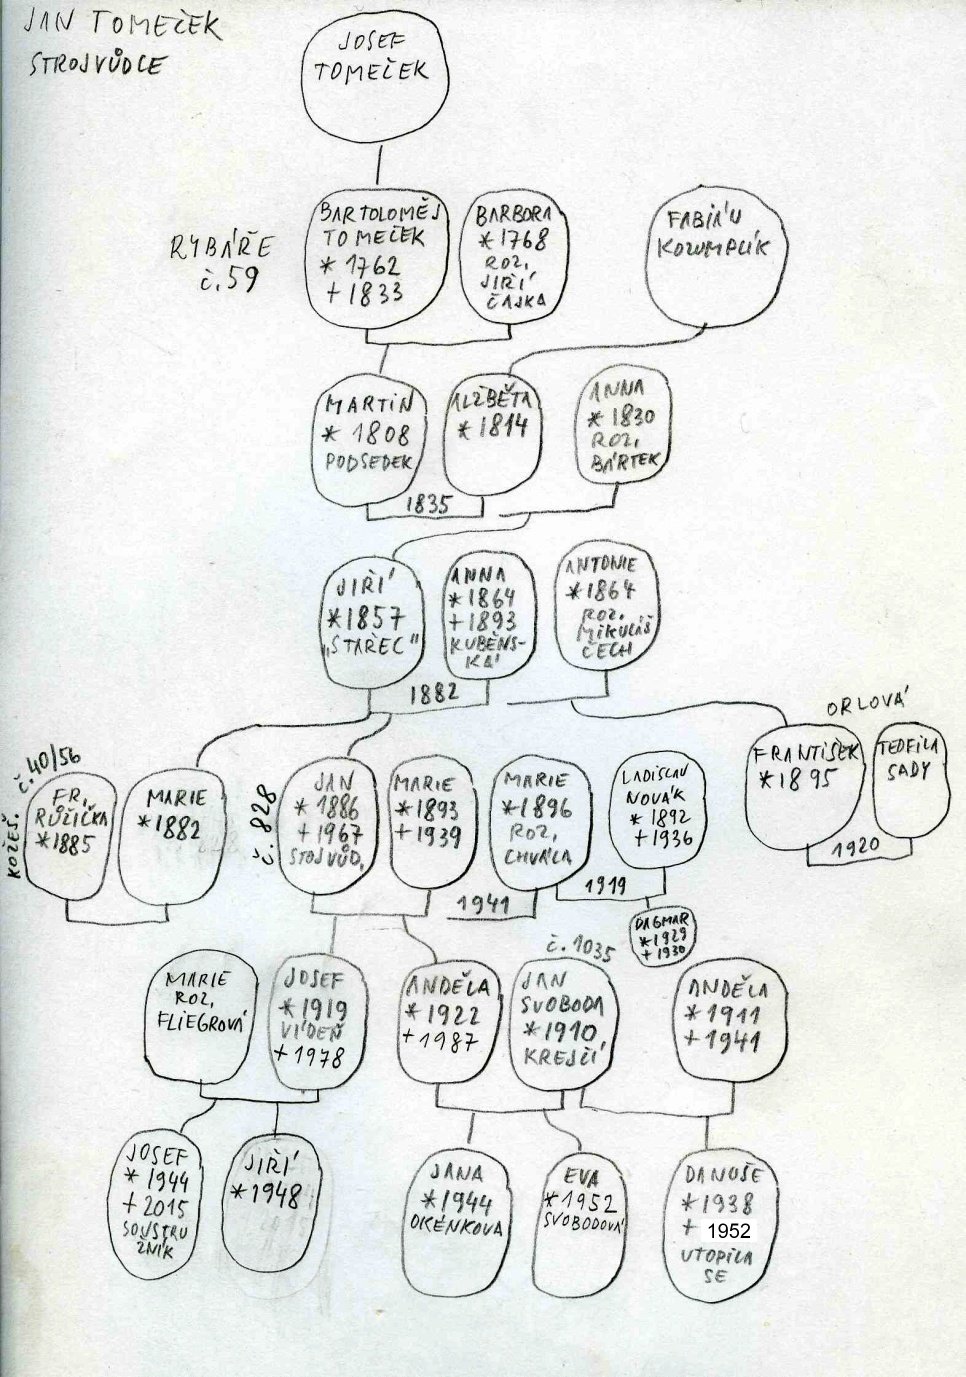 JAN TOMEČEK
STROJVŮDCE
JOSEF
TOMEČEK
RYBÁŘE
č.59
BARTOLOMĚJ
TOMEČEK
* 1762
+ 1833
BARBORA
* 1768
ROZ,
JIŘÍ
ČAJKA
FABIÁN
KOZUMPLÍK
MARTIN
* 1808
PODSEDEK
ALŽBĚTA
* 1814
ANNA
* 1830
ROZ,
BÁRTEK
1835
JIŘÍ
* 1857
„STAŘEC"
ANNA
* 1864
+ 1893
KUBĚNS-
KÁ
ANTONIE
* 1864
ROZ,
MIKULÁŠ
ČECH
1882
ORLOVÁ
KOŽEŠ.
č.40/56
FR,
RŮŽIČKA
* 1885
MARIE
* 1882
č.828
JAN
* 1886
+ 1967
STOJVŮD,
MARIE
* 1893
+ 1939
MARIE
* 1896
ROZ,
CHVÁLA
LADISLAV
NOVÁK
* 1892
+ 1936
FRANTIŠEK
* 1895
TEOFILA
SADY
1920
1941
1919
DAGMAR
* 1929
+ 1930
č.1035
MARIE
ROZ,
FLIEGROVÁ
JOSEF
* 1919
VÍDEŇ
+ 1978
ANDĚLA
* 1922
+ 1987
JAN
SVOBODA
* 1910,
KREJČÍ
ANDĚLA
* 1911
+ 1941
JOSEF
* 1944
+ 2015
SOUSTRU
ŽNÍK
JIŘÍ
* 1948
JANA
* 1944
OKÉNKOVA
EVA
* 1952
SVOBODOVÁ
DANUŠE
* 1938
+ 1952
UTOPILA
SE